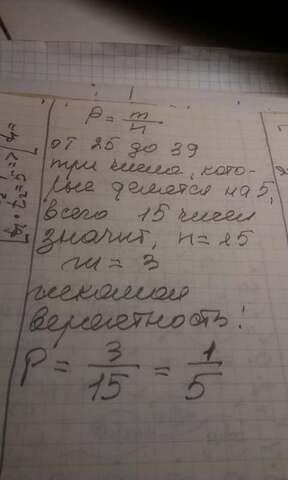 P = m/n
от 25 до 39
три числа, кото-
рые делятся на 5,
всего 15 чисел
значит, n = 15
m = 3
искомая
вероятность:
P = 3/15 = 1/5